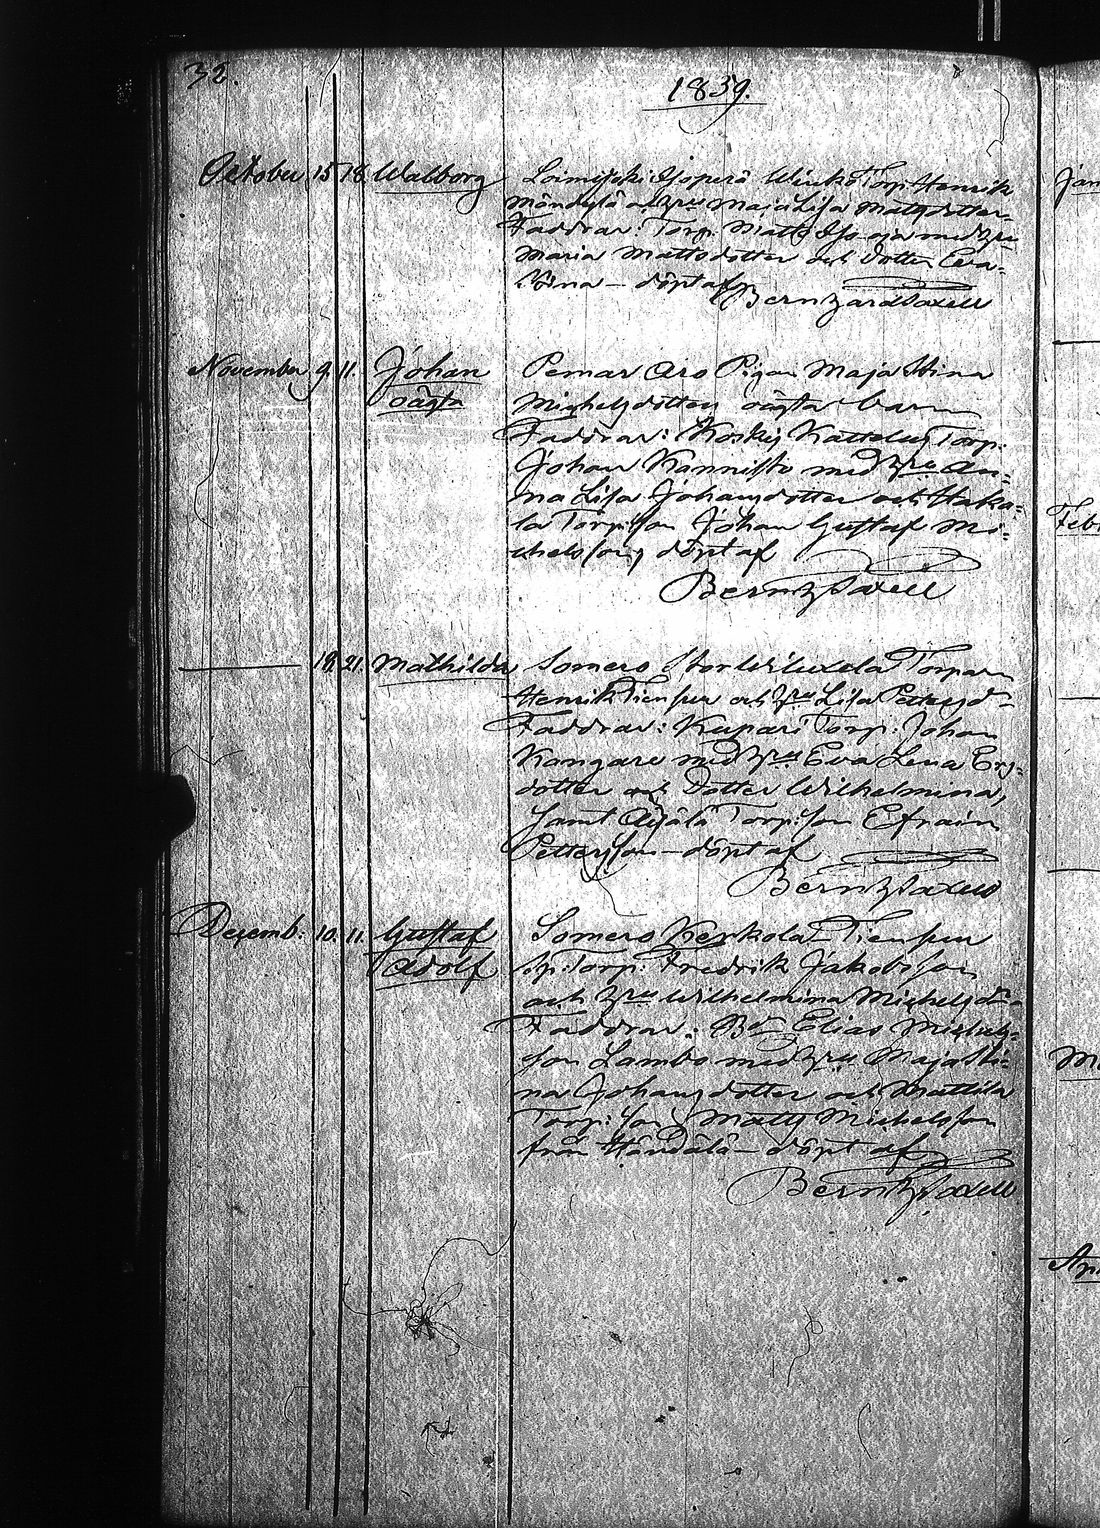 32.
1839.
October 15 18 Walborg Loimijoki Torp. Henrik
Mändylä och hru Maja Lisa Mattsdotter
Faddrar: Torp. Matts med hru
Maria Mattsdotter och dotter Eva
Stina – döpt af
Berntz Saxell
November 9. 11. Johan Pemar Aro Pigan Maja Stina
oägta Michelsdotters oägta barn
Faddrar: Koskis Kattelus Torp.
Johan Kannisto med hru An-
na Lisa Johansdotter och Haka-
la Torp:son Johan Gustaf Mi-
chelsson, döpt af
Berntz Saxell
19. 21. Mathilda Somero Torparn
Henrik Tiensuu och hru Lisa Pettersd-
Faddrar: Kupari Torp: Johan
Kangare med hru Eva Lena Ers-
dotter och Dotter Wilhelmina,
samt Äijälä Torp:son Efraim
Pettersson – döpt af
Berntz Saxell
Dezemb. 10. 11. Gustaf Somero Kerkola Tiensuu
Adolf Sp:Torp: Fredrik Jakobsson
och hru Wilhelmina Michelsd-
Faddrar: Bd. Elias Michels-
son Lambo med hru Maja Sti-
na Johansdotter och Mattila
Torp: son Matts Michelsson
från Händälä – döpt af
Berntz Saxell
Jan
Feb
Ma
Ap